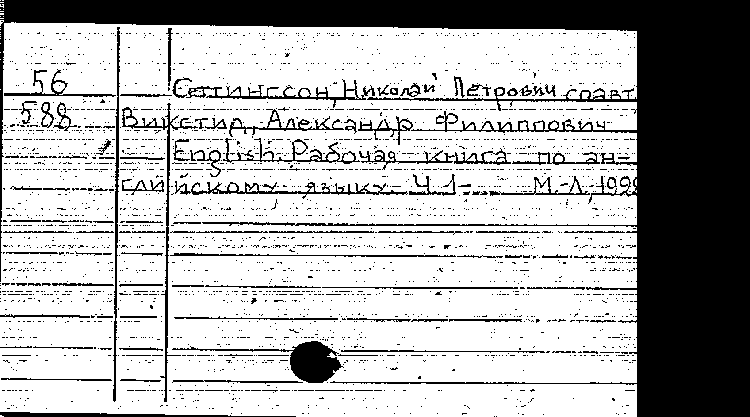 56 Сеттингссон, Николай Петрович соавт
588 Викстид, Александр Филиппович
English. Рабочая книга по ан-
глийскому языку Ч 1- М.-Л,